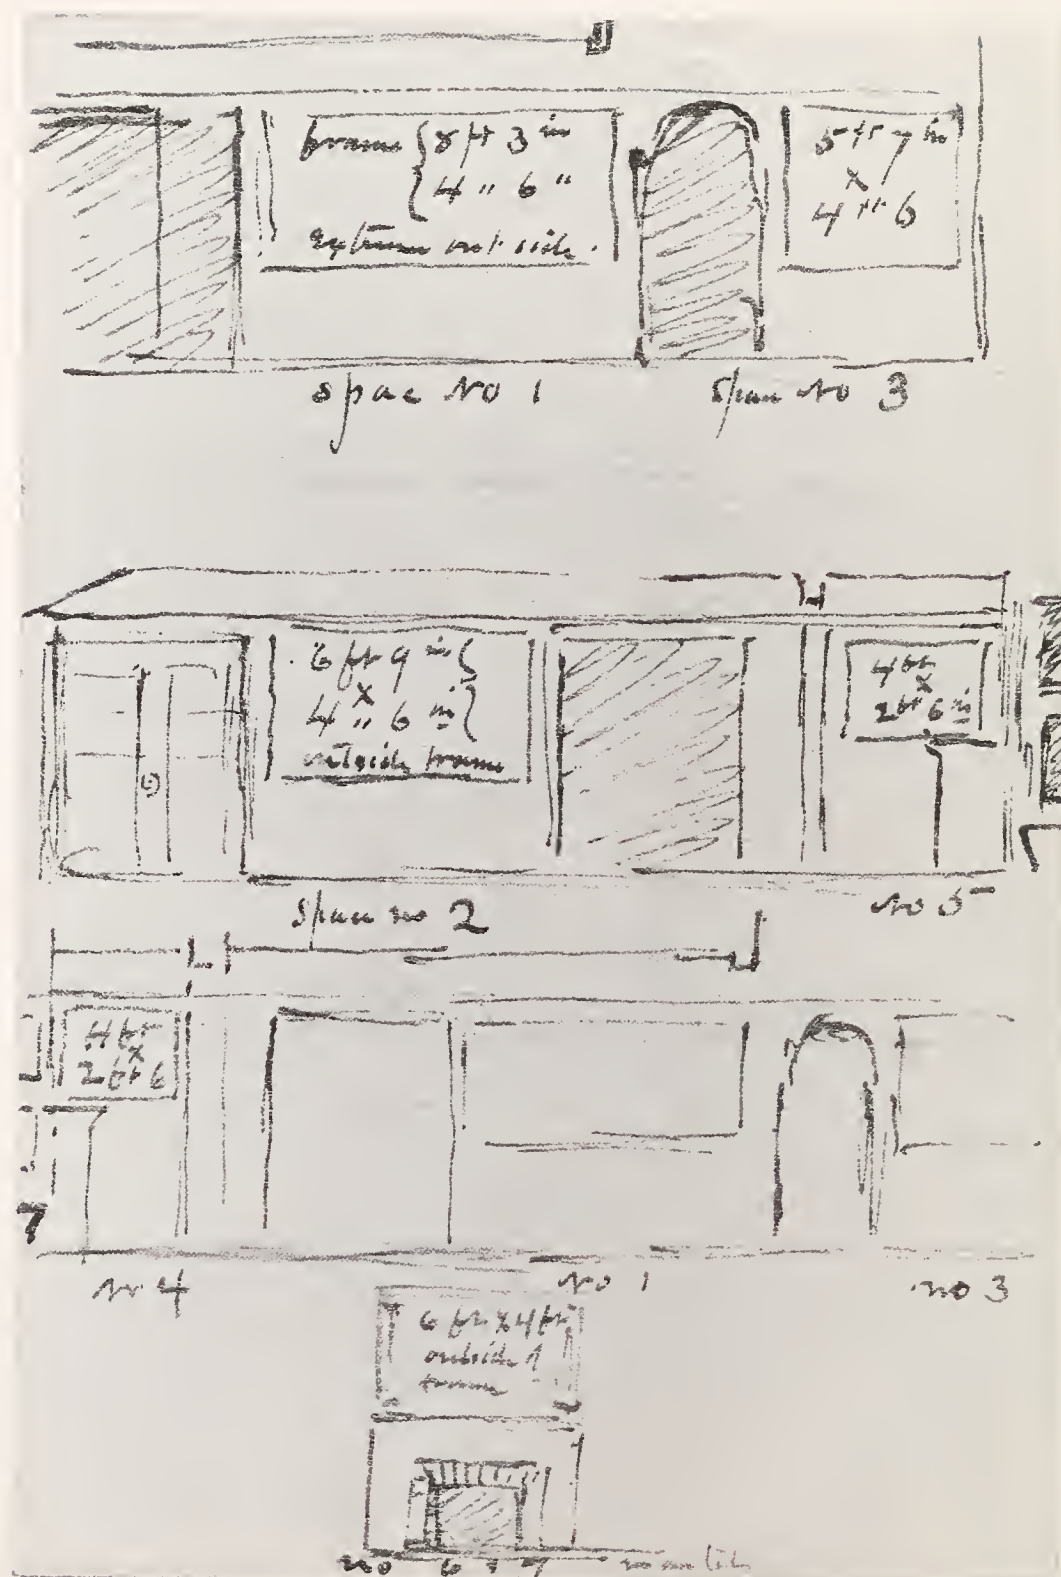 frame { 8 ft 3 in
4 " 6 "
extreme outside.
5 ft 7 in
x
4 ft 6
Space No 1
Space No 3
6 ft 9 in
x
4 " 6 in
outside frame
4 ft
x
2 ft 6 in
Space no 2
No 5
4 ft
x
2 ft 6
7
No 4
No 1
no 3
6 ft x 4 ft
outside of
frame
no 6 + 7 mantels